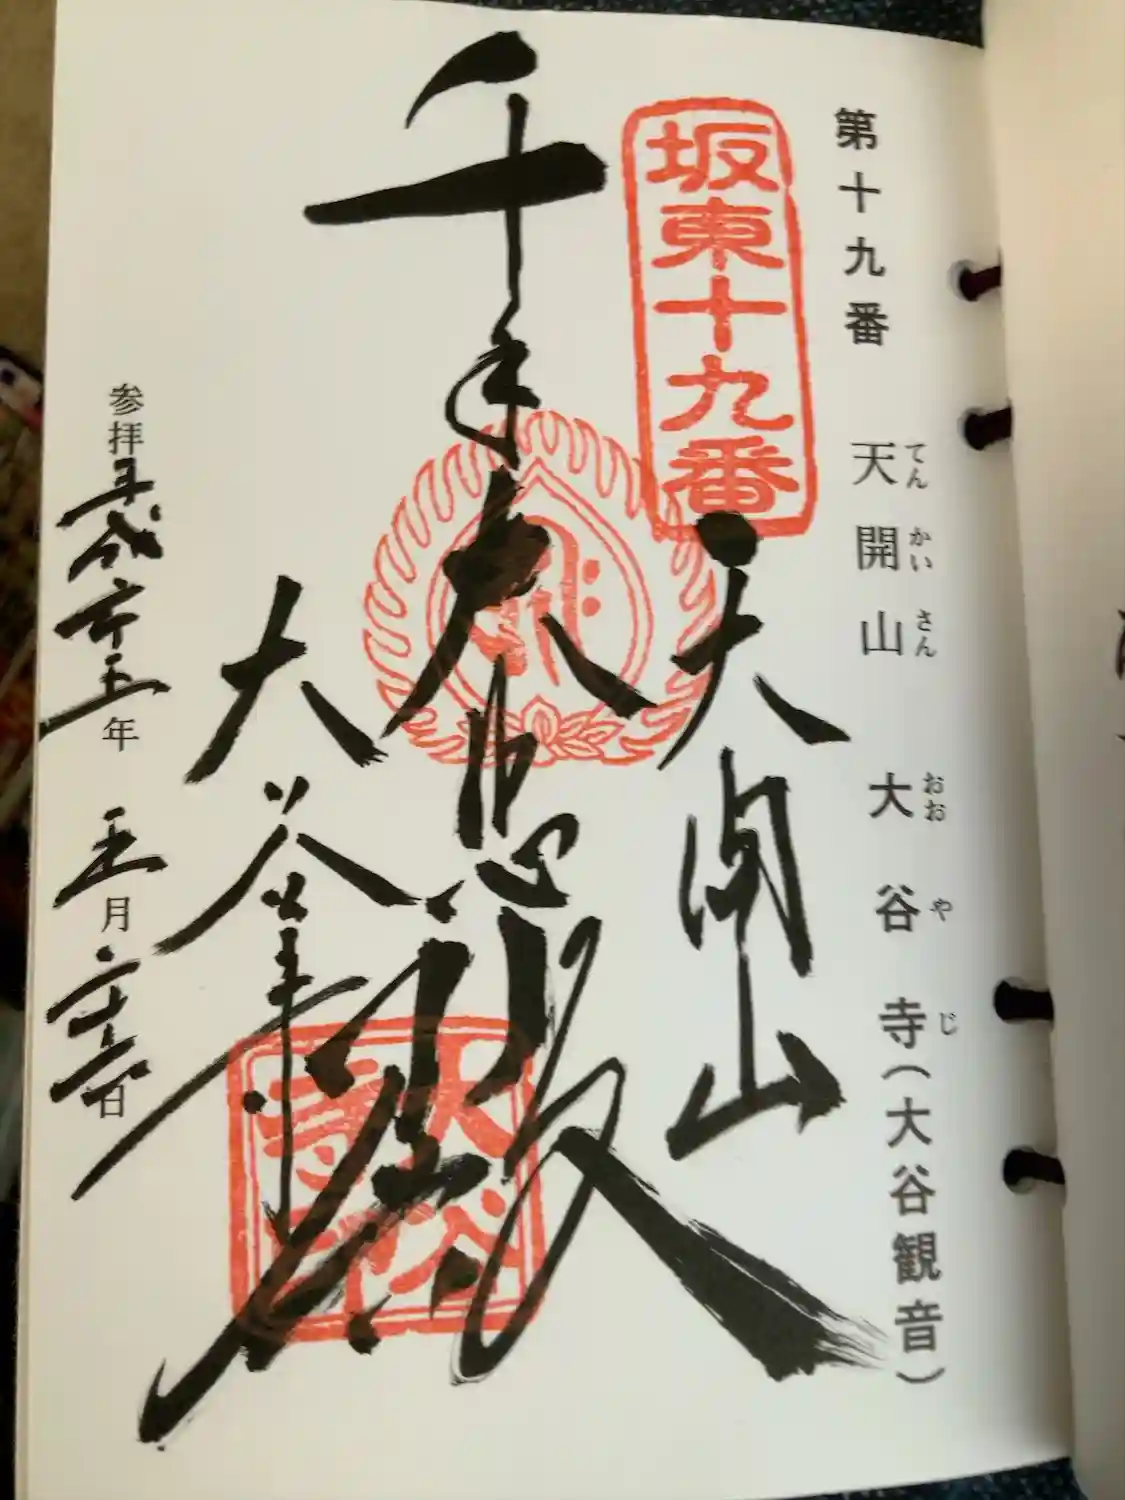 第十九番 天開山 大谷寺(大谷観音)
てんかいさん おおやじ
坂東十九番
天開山
千手大悲殿
大谷寺
大谷寺印
参拝平成廿五年 五月二十六日